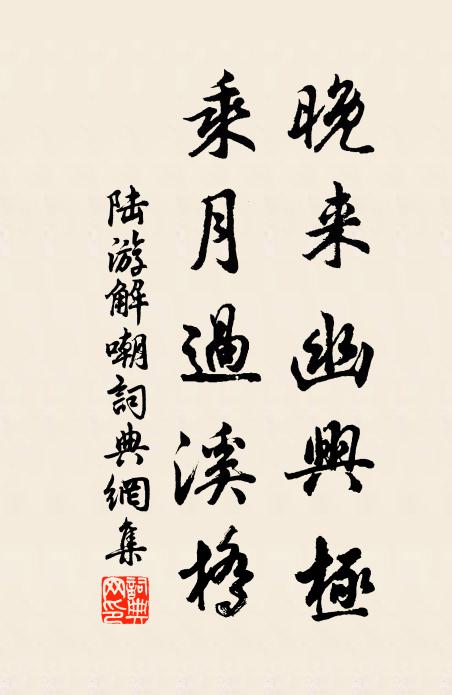 晚来幽興極
乘月過溪橋
陆游解嘲詞典網集
詞典网印